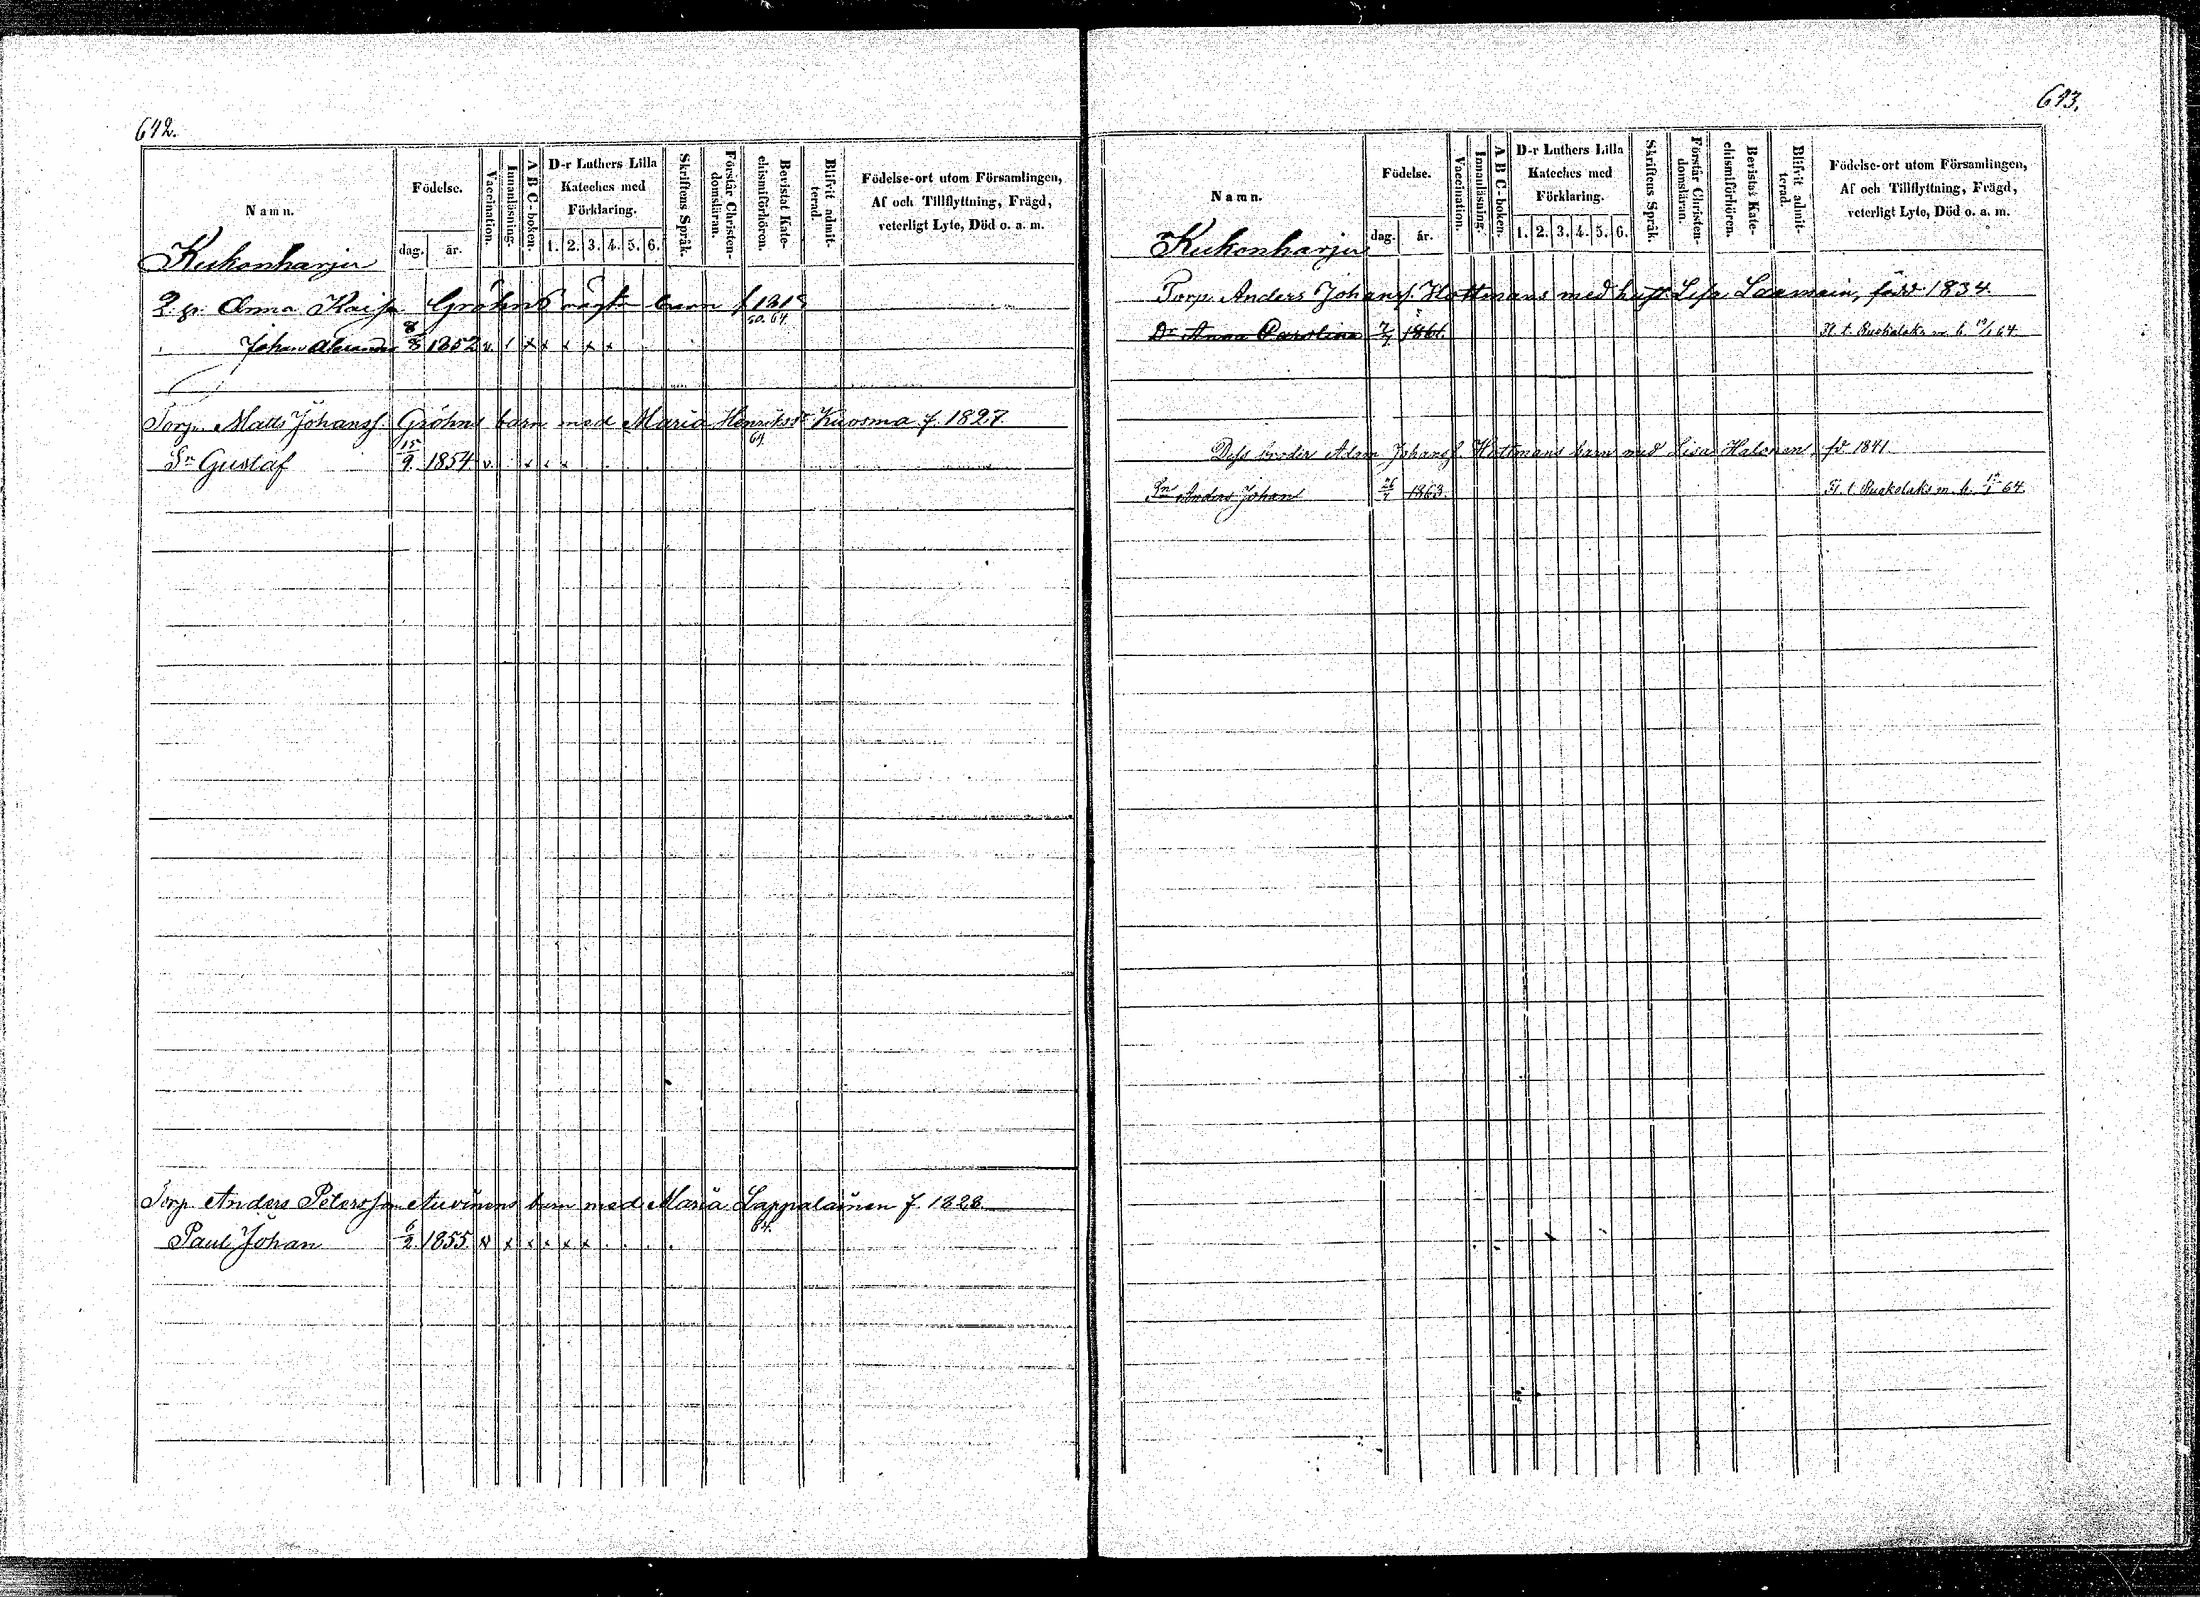 642.
Namn.
Födelse.
dag. år.
Vaccination.
Innanläsning.
A B C-boken.
D-r Luthers Lilla
Kateches med
Förklaring.
1. 2. 3. 4. 5. 6.
Skriftens Språk.
Förstår Christen-
domsläran.
Bevistat Kate-
chismiförhören.
Blifvit admit-
terad.
Födelse-ort utom Församlingen,
Af och Tillflyttning, Frägd,
veterligt Lyte, Död o. a. m.
Kukonharju
Anna Kaisa Gröhns barn f. 1818
50. 64.
Johan Alexander 8/8 1852 v. / x x x x x
Torp. Matts Johanss. Gröhns barn med Maria Henriksdr Kuosma f. 1827.
64
Sn Gustaf 15/9. 1854 v. . x x x . . . .
Torp. Anders Petersson Auvinens barn med Maria Lappalainen f. 1828.
64.
Paul Johan 6/2 1855 v x x x x x . . . .
643.
Namn.
Födelse.
dag. år.
Vaccination.
Innanläsning.
A B C-boken.
D-r Luthers Lilla
Kateches med
Förklaring.
1. 2. 3. 4. 5. 6.
Skriftens Språk.
Förstår Christen-
domsläran.
Bevistat Kate-
chismiförhören.
Blifvit admit-
terad.
Födelse-ort utom Församlingen,
Af och Tillflyttning, Frägd,
veterligt Lyte, Död o. a. m.
Kukonharju
Torp. Anders Johanss. Hottmans med hust. Lisa född 1834.
Dr Anna Carolina 7/7 1861. Fl. t. Ruokolaks m. b. 64.
Dess broder Adam Johanss. Hottmans barn med Lisa Halonen, fd 1841
Sn Anders Johan 1863. Fl. t. Ruokolaks m. b. 64.